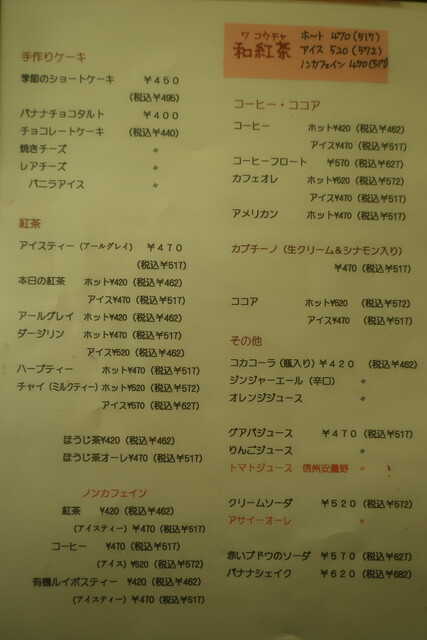 手作りケーキ
季節のショートケーキ ¥450
(税込¥495)
バナナチョコタルト ¥400
チョコレートケーキ (税込¥440)
焼きチーズ 〃
レアチーズ 〃
バニラアイス 〃
紅茶
アイスティー（アールグレイ） ¥470
(税込¥517)
本日の紅茶 ホット¥420 (税込¥462)
アイス¥470 (税込¥517)
アールグレイ ホット¥420 (税込¥462)
ダージリン ホット¥470 (税込¥517)
アイス¥520 (税込¥462)
ハーブティー ホット¥470 (税込¥517)
チャイ（ミルクティー） ホット¥520 (税込¥572)
アイス¥570 (税込¥627)
ほうじ茶¥420 (税込¥462)
ほうじ茶オーレ¥470 (税込¥517)
ノンカフェイン
紅茶 ¥420 (税込¥462)
(アイスティー) ¥470 (税込¥517)
コーヒー ¥470 (税込¥517)
(アイス) ¥520 (税込¥572)
有機ルイボスティー ¥420 (税込¥462)
(アイスティー) ¥470 (税込¥517)
ワ コウチャ
和紅茶
ホット 470(517)
アイス 520(572)
ノンカフェイン 470(517)
コーヒー・ココア
コーヒー ホット¥420 (税込¥462)
アイス¥470 (税込¥517)
コーヒーフロート ¥570 (税込¥627)
カフェオレ ホット¥520 (税込¥572)
アイス¥470 (税込¥517)
アメリカン ホット¥470 (税込¥517)
カプチーノ（生クリーム＆シナモン入り）
¥470 (税込¥517)
ココア ホット¥520 (税込¥572)
アイス¥470 (税込¥517)
その他
コカコーラ（瓶入り）¥420 (税込¥462)
ジンジャーエール（辛口） 〃
オレンジジュース 〃
グアバジュース ¥470 (税込¥517)
りんごジュース 〃
トマトジュース 信州安曇野 〃
クリームソーダ ¥520 (税込¥572)
アサイーオーレ 〃
赤いブドウのソーダ ¥570 (税込¥627)
バナナシェイク ¥620 (税込¥682)